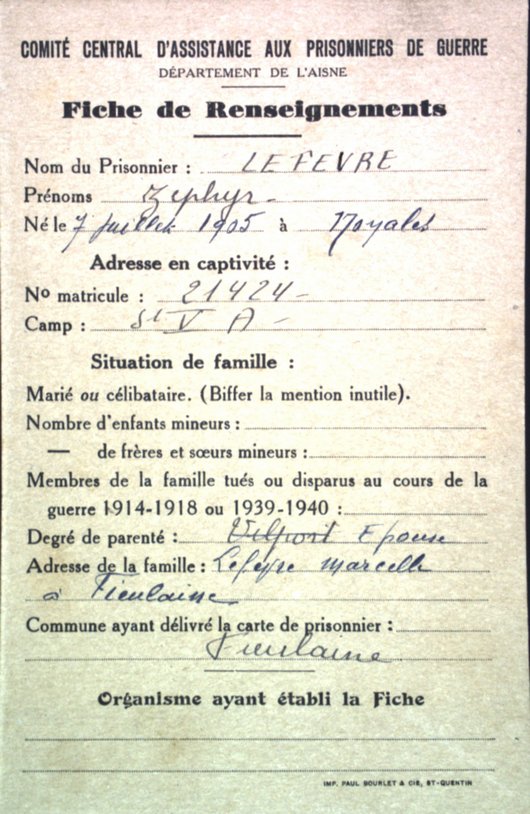 COMITÉ CENTRAL D'ASSISTANCE AUX PRISONNIERS DE GUERRE
DÉPARTEMENT DE L'AISNE
Fiche de Renseignements
Nom du Prisonnier : LEFEVRE
Prénoms Zephyr
Né le 7 Juillet 1905 à Noyales
Adresse en captivité :
No matricule : 21424
Camp : St V A
Situation de famille :
Marié ou célibataire. (Biffer la mention inutile).
Nombre d'enfants mineurs :
— de frères et sœurs mineurs :
Membres de la famille tués ou disparus au cours de la
guerre 1914-1918 ou 1939-1940 :
Degré de parenté : Epouse
Adresse de la famille : Lefevre Marcelle
à Fieulaine
Commune ayant délivré la carte de prisonnier :
Fieulaine
Organisme ayant établi la Fiche
IMP. PAUL BOURLET & CIE, ST-QUENTIN